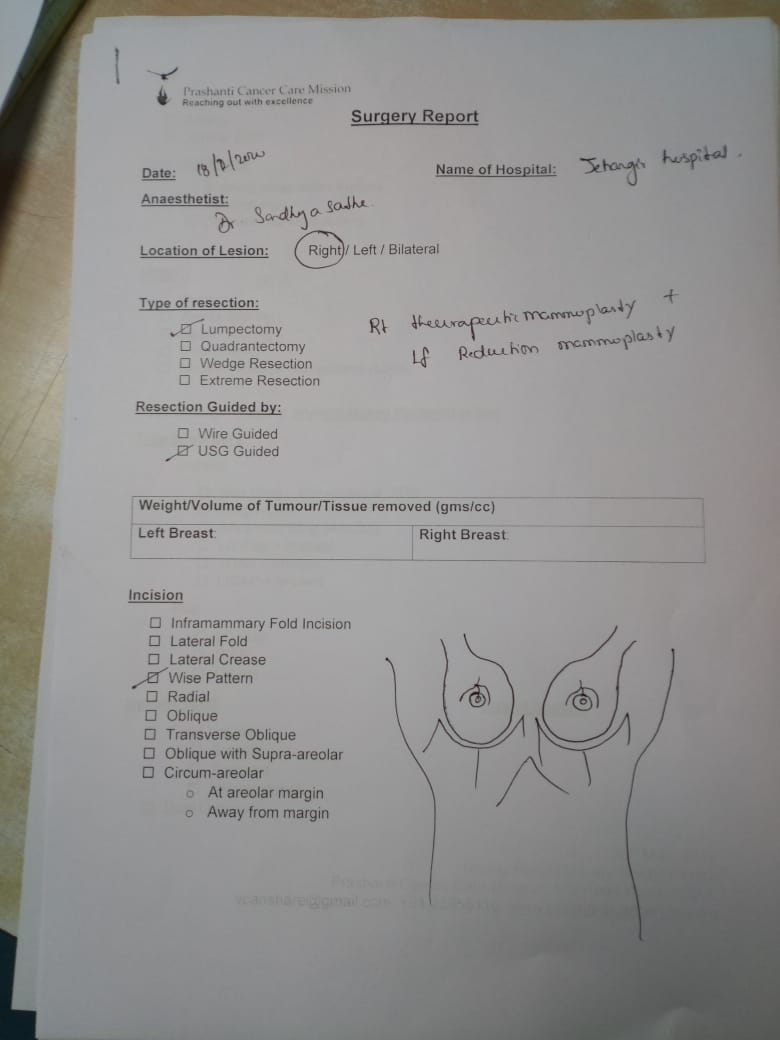 Prashanti Cancer Care Mission
Reaching out with excellence
Surgery Report
Date:
Name of Hospital: Jehangir hospital.
Anaesthetist: Dr. Sandhya Sathe.
Location of Lesion: Right / Left / Bilateral
Type of resection:
Lumpectomy
Quadrantectomy
Wedge Resection
Extreme Resection
Rt theurapeutic mammoplasty +
Lf Reduction mammoplasty
Resection Guided by:
Wire Guided
USG Guided
Weight/Volume of Tumour/Tissue removed (gms/cc)
Left Breast: Right Breast:
Incision
Inframammary Fold Incision
Lateral Fold
Lateral Crease
Wise Pattern
Radial
Oblique
Transverse Oblique
Oblique with Supra-areolar
Circum-areolar
At areolar margin
Away from margin